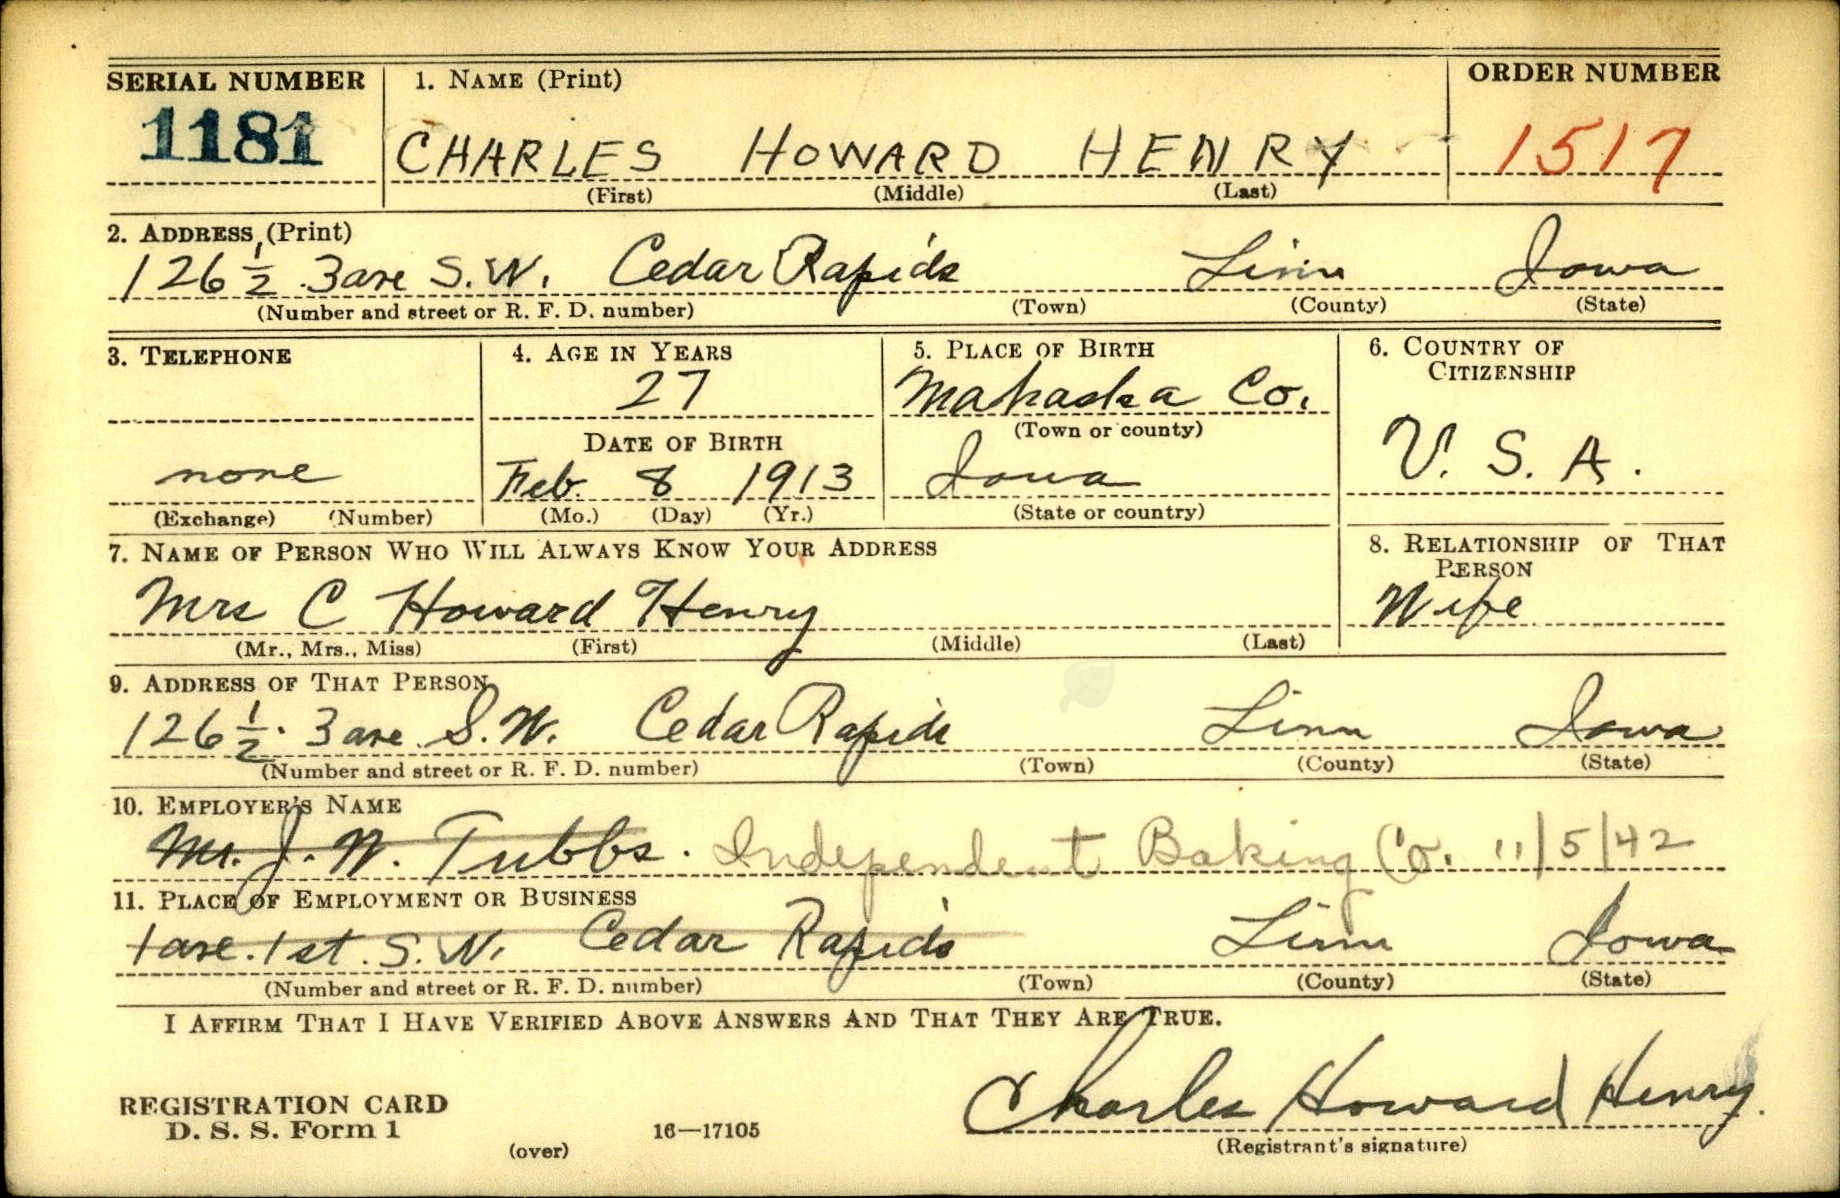 SERIAL NUMBER 1. NAME (Print) ORDER NUMBER
1181 CHARLES HOWARD HENRY 1517
(First) (Middle) (Last)
2. ADDRESS (Print)
126 1/2 3 ave S.W. Cedar Rapids Linn Iowa
(Number and street or R. F. D. number) (Town) (County) (State)
3. TELEPHONE 4. AGE IN YEARS 5. PLACE OF BIRTH 6. COUNTRY OF
CITIZENSHIP
27 Mahaska Co.
DATE OF BIRTH (Town or county)
U. S. A.
none Feb. 8 1913 Iowa
(Exchange) (Number) (Mo.) (Day) (Yr.) (State or country)
7. NAME OF PERSON WHO WILL ALWAYS KNOW YOUR ADDRESS 8. RELATIONSHIP OF THAT
PERSON
Mrs C Howard Henry Wife
(Mr., Mrs., Miss) (First) (Middle) (Last)
9. ADDRESS OF THAT PERSON
126 1/2 3 ave S.W. Cedar Rapids Linn Iowa
(Number and street or R. F. D. number) (Town) (County) (State)
10. EMPLOYER'S NAME
Mr. J. W. Tubbs. Independent Baking Co. 11/5/42
11. PLACE OF EMPLOYMENT OR BUSINESS
1 ave. 1st. S.W. Cedar Rapids Linn Iowa
(Number and street or R. F. D. number) (Town) (County) (State)
I AFFIRM THAT I HAVE VERIFIED ABOVE ANSWERS AND THAT THEY ARE TRUE.
Charles Howard Henry
REGISTRATION CARD
D. S. S. Form 1 16—17105 (Registrant's signature)
(over)